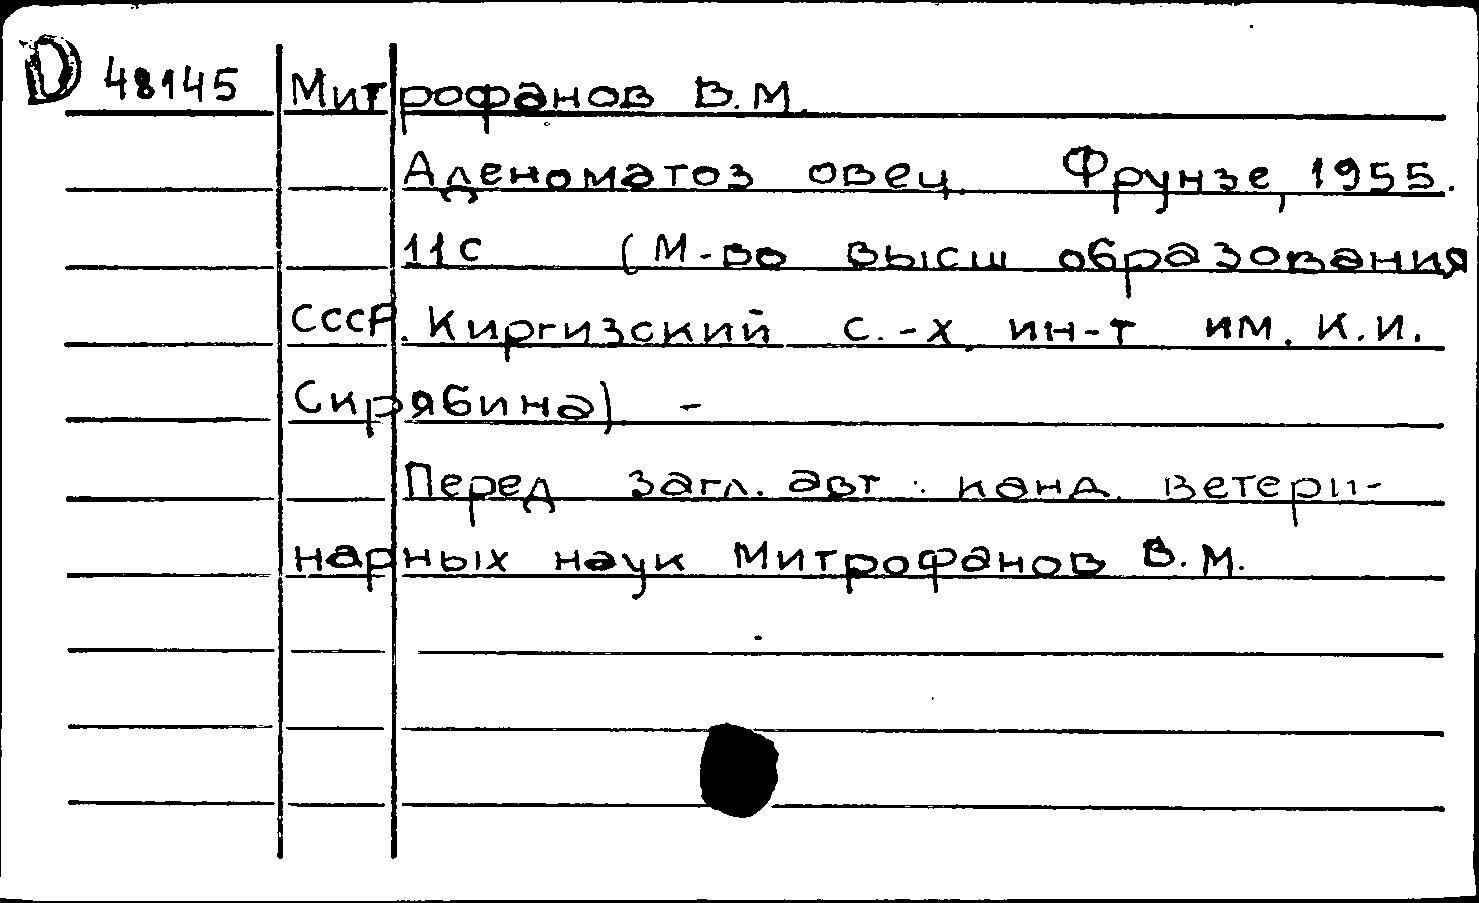 D 48145 Митрофанов В.М.
Аденоматоз овец. Фрунзе, 1955.
11с (М-во высш образования
СССР. Киргизский с.-х. ин-т им. К.И.
Скрябина) -
Перед загл. авт.: канд. ветери-
нарных наук Митрофанов В.М.